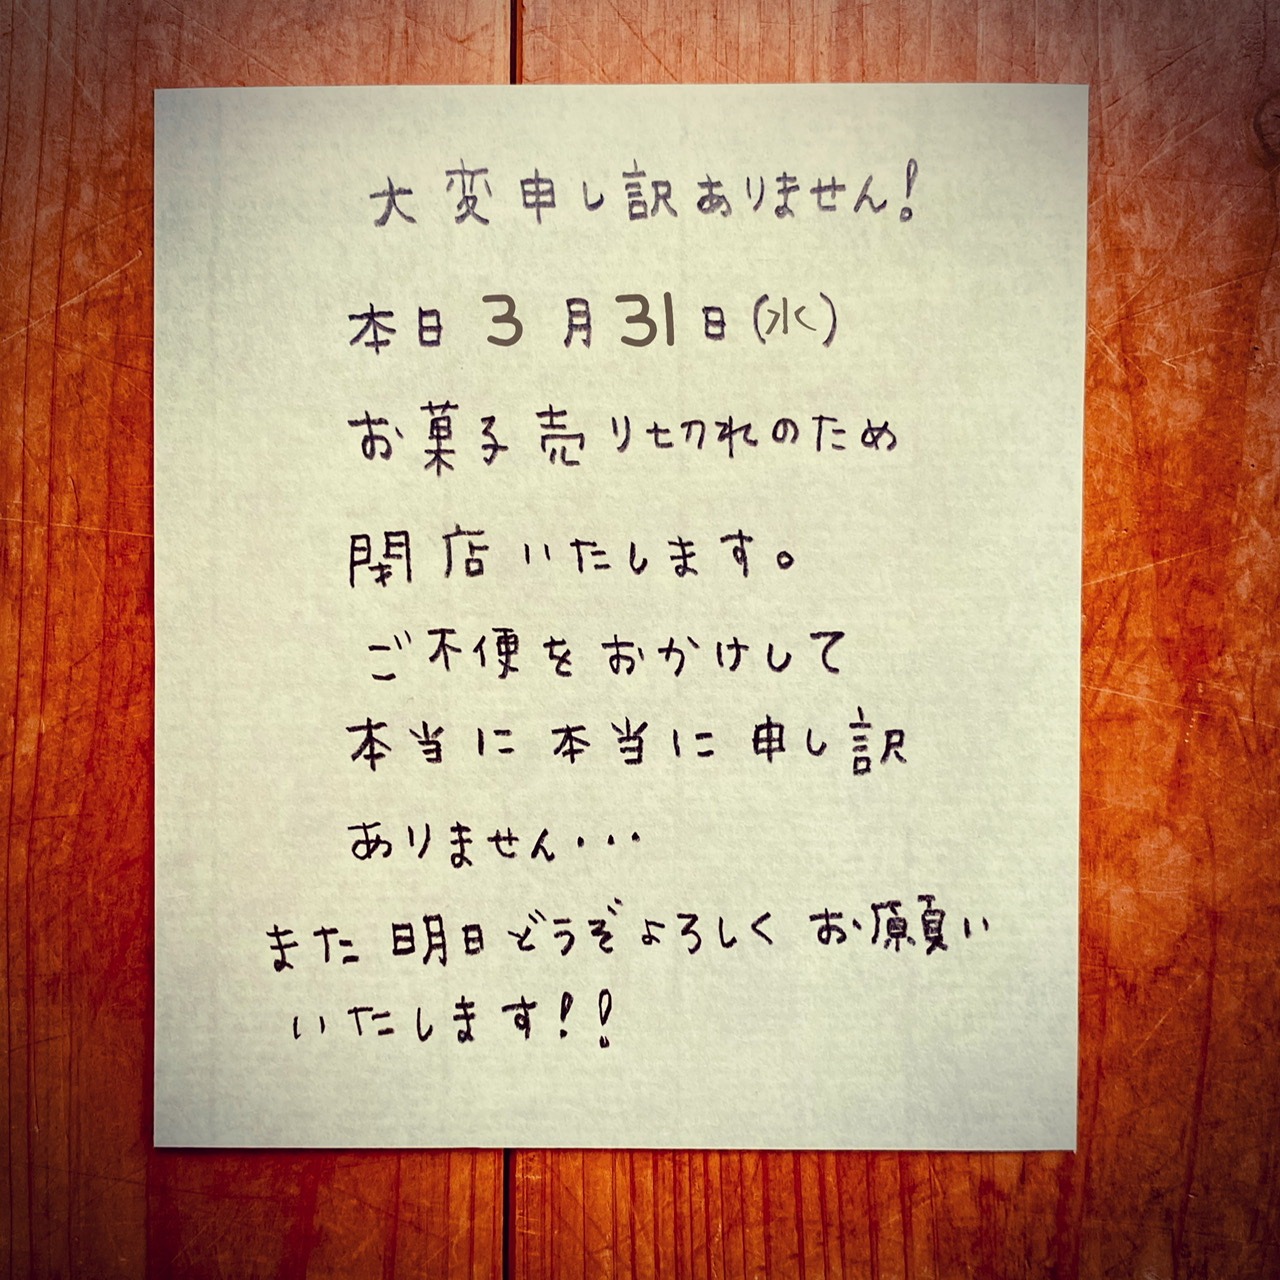 大変申し訳ありません!
本日3月31日(水)
お菓子売り切れのため
閉店いたします。
ご不便をおかけして
本当に本当に申し訳
ありません・・・
また明日どうぞよろしくお願い
いたします!!